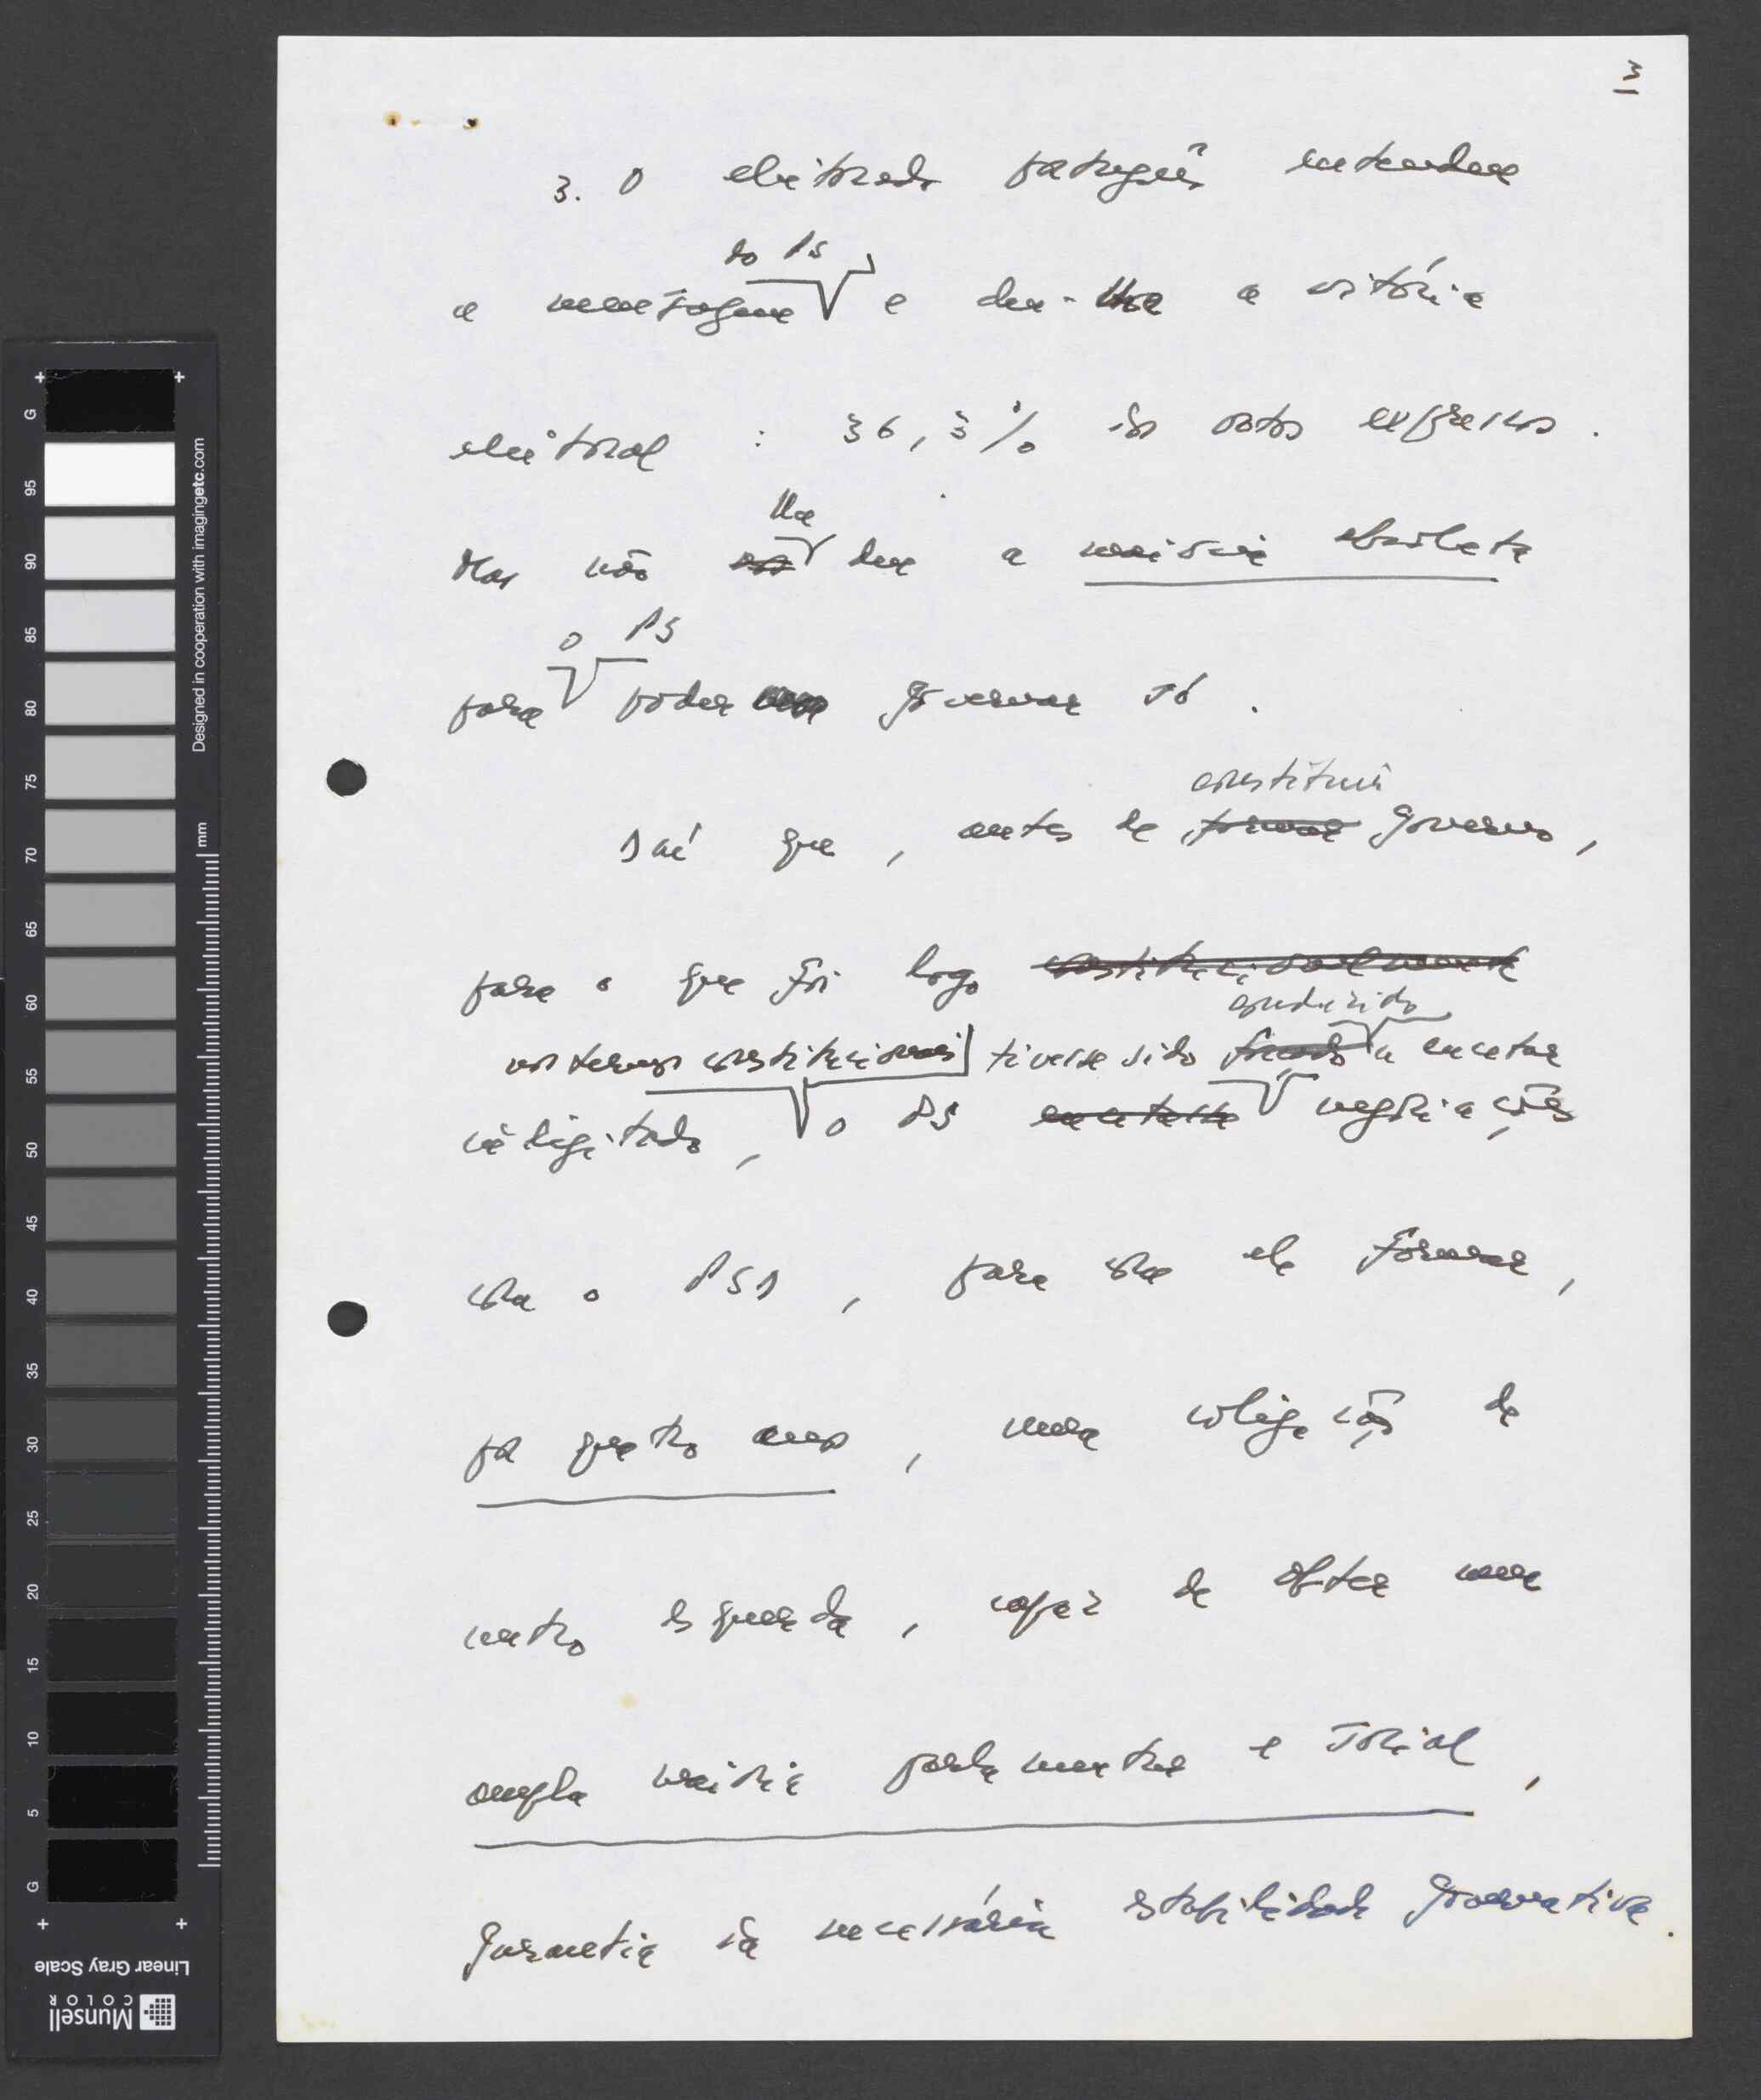 3
3. O eleitorado português entendeu
do PS
a mensagem e deu-lhe a vitória
eleitoral : 36,3% dos votos expressos.
lhe
Mas não deu a maioria absoluta
o PS
para poder governar só.
constituir
Daí que, antes de formar Governo,
para o que foi logo constitucionalmente
conduzido
nos termos constitucionais tivesse sido forçado a encetar
indigitado, o PS encetasse negociações
com o PSD, para com ele formar,
por quatro anos, uma coligação de
centro esquerda, capaz de obter uma
ampla maioria parlamentar e social,
garantia da necessária estabilidade governativa.
G
95
90
85
80
75
70
65
60
55
50
45
40
35
30
25
20
15
10
5
G
Designed in cooperation with imagingetc.com
mm
Linear Gray Scale
Munsell
COLOR